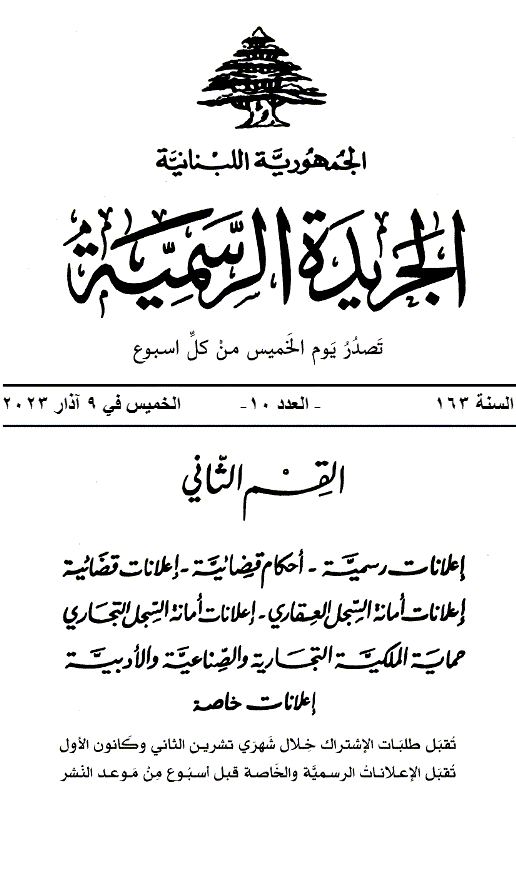 الجُمهُوريَّة اللبْنانيَّة
الجَريدَة الرسَّميَّة
تَصدُرُ يَوم الخَميس منْ كلِّ اسبوع
السنة ١٦٣ - العدد ١٠- الخميس في ٩ آذار ٢٠٢٣
القِسْم الثّاني
إعلانات رسميَّة - أحكام قضائيَّة - إعلانات قضائية
إعلانات أمانة السِّجل العقاري - إعلانات أمانة السِّجل التجاري
حماية الملكيَّة التجارية والصِّناعيَّة والأدبيَّة
إعلانات خاصة
تُقبَل طلبَات الإشتراك خِلال شَهرَي تشرين الثاني وكَانون الأول
تُقبَل الإعلاناتُ الرسميَّة والخَاصة قبل أسبُوع مِنْ مَوعد النَشر